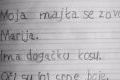 Moja majka se zove
Marija.
Ima dogačku kosu.
Oči su joj crne boje.